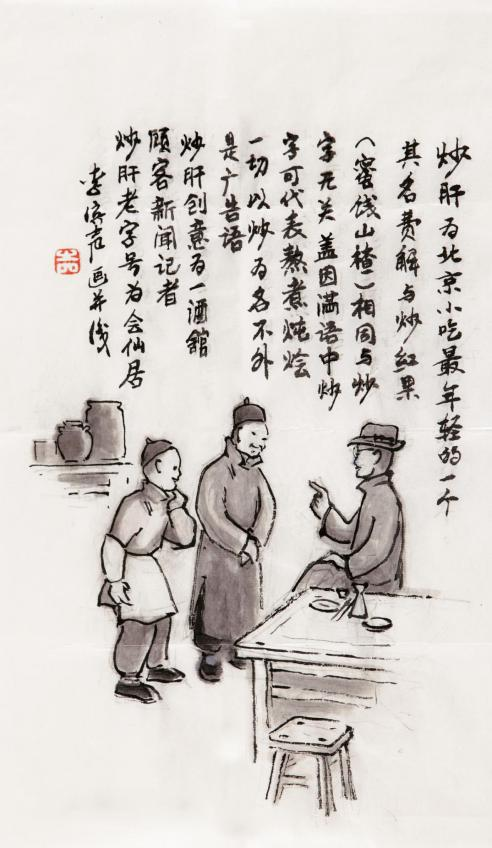 炒肝为北京小吃最年轻的一个
其名费解与炒红果
（蜜饯山楂）相同与炒
字无关盖因满语中炒
字可代表熬煮炖烩
一切以炒为名不外
是广告语
炒肝创意为一酒馆
顾客新闻记者
炒肝老字号为会仙居
李滨声画并浅